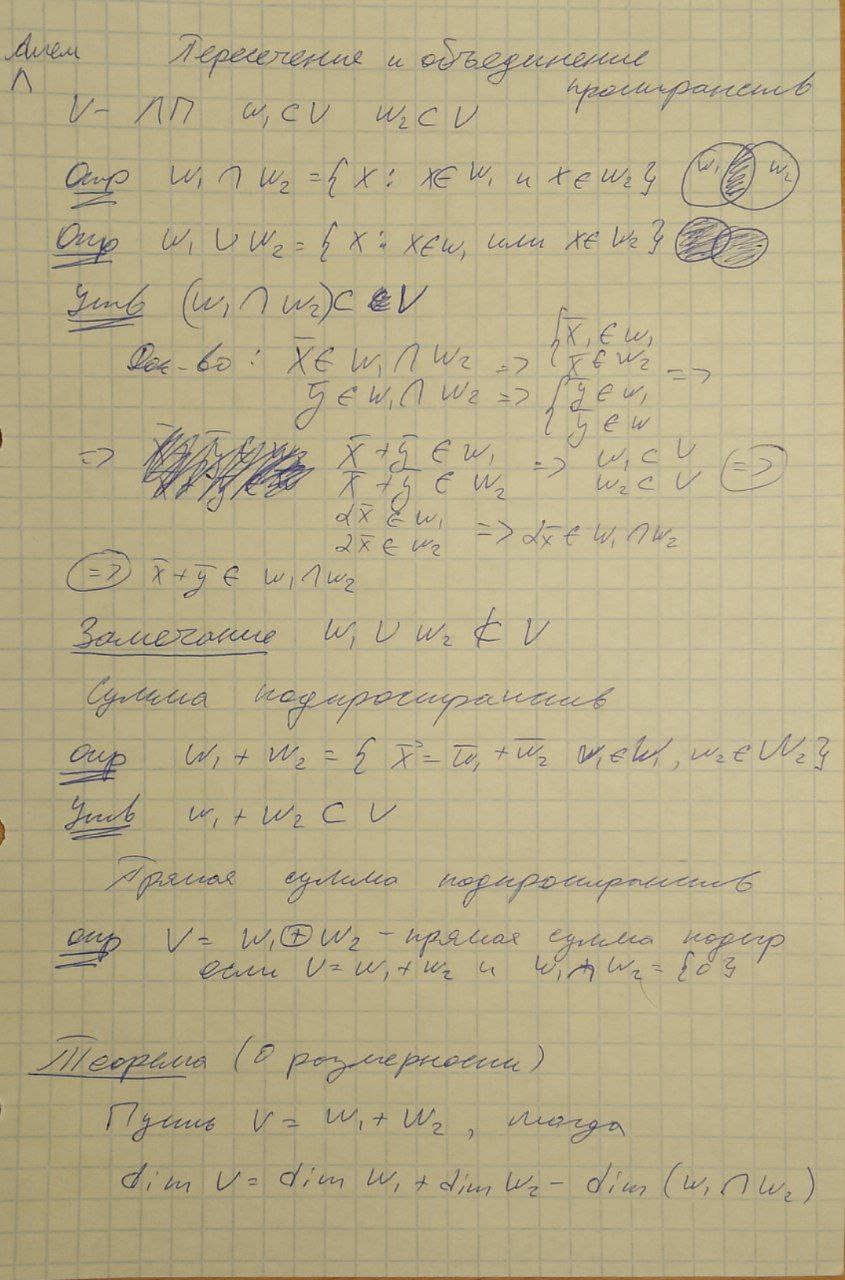 Пересечение и объединение
пространств
V - ЛП W₁ ⊂ V W₂ ⊂ V
Опр W₁ ∩ W₂ = { x : x ∈ W₁ и x ∈ W₂ } W₁ W₂
Опр W₁ ∪ W₂ = { x : x ∈ W₁ или x ∈ W₂ }
Утв (W₁ ∩ W₂) ⊂ V
Док-во : x̄ ∈ W₁ ∩ W₂ => { x̄, ∈ W₁ x̄ ∈ W₂ =>
ȳ ∈ W₁ ∩ W₂ => { ȳ ∈ W₁ ȳ ∈ W
=> x̄ + ȳ ∈ W₁ => W₁ ⊂ V =>
x̄ + ȳ ∈ W₂ W₂ ⊂ V
αx̄ ∈ W₁
αx̄ ∈ W₂ => αx̄ ∈ W₁ ∩ W₂
=> x̄ + ȳ ∈ W₁ ∩ W₂
Замечание W₁ ∪ W₂ ⊄ V
Сумма подпространств
опр W₁ + W₂ = { x̄ = w̄₁ + w̄₂ w₁ ∈ W₁, w₂ ∈ W₂ }
Утв W₁ + W₂ ⊂ V
Прямая сумма подпространств
опр V = W₁ ⊕ W₂ - прямая сумма подпр
если V = W₁ + W₂ и W₁ ∩ W₂ = {0}
Теорема (О размерности)
Пусть V = W₁ + W₂, тогда
dim V = dim W₁ + dim W₂ - dim (W₁ ∩ W₂)